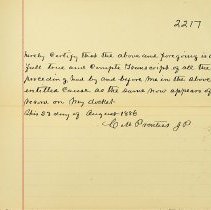 2217
hereby Certify that the above and foregoing is a
full true and Complete Transcript of all the
proceedings had by and before me in the above
entitled Cause as the same now appears of
record on My docket
this 23 day of August 1886
J P